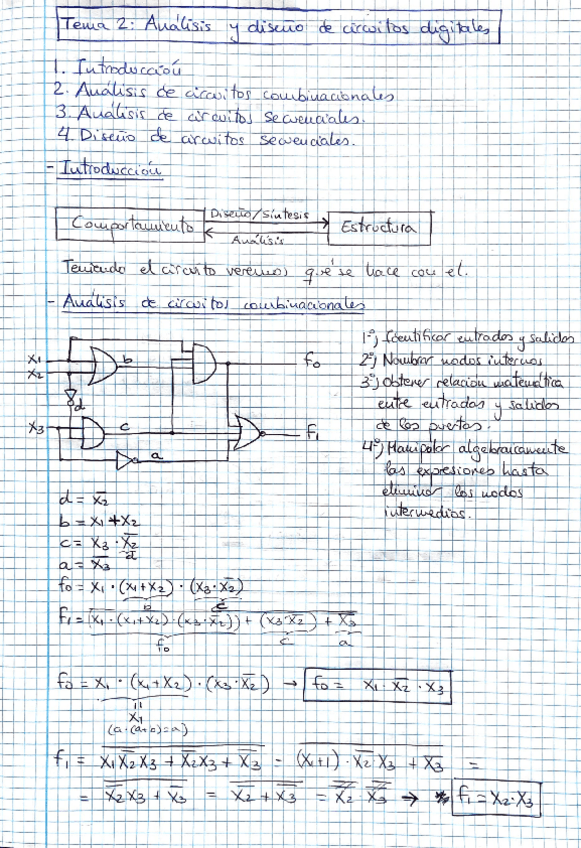 Tema 2: Análisis y diseño de circuitos digitales
1. Introducción
2. Análisis de circuitos combinacionales
3. Análisis de circuitos secuenciales.
4. Diseño de circuitos secuenciales.
- Introducción
Comportamiento
Diseño/Síntesis
Análisis
Estructura
Teniendo el circuito veremos qué se hace con el.
- Análisis de circuitos combinacionales
X1
X2
X3
b
d
c
a
f0
f1
1º) Identificar entradas y salidas
2º) Nombrar nodos internos
3º) Obtener relación matemática
entre entradas y salidas
de las puertas.
4º) Manipular algebraicamente
las expresiones hasta
eliminar los nodos
intermedios.
d = x̅2
b = x1 + x2
c = x3 · x̅2
d
a = x̅3
f0 = x1 · (x1+x2) · (x3·x̅2)
b c
f1 = \overline{(x1 · (x1+x2) · (x3·x̅2)) + (x3·x̅2) + x̅3}
f0 c a
f0 = x1 · (x1+x2) · (x3·x̅2) → f0 = x1 · x̅2 · x3
x1
(a·(a+b)=a)
f1 = \overline{x1x̅2x3 + x̅2x3 + x̅3} = \overline{(x1+1) · x̅2x3 + x̅3} =
= \overline{x̅2x3 + x̅3} = \overline{x̅2 + x̅3} = \overline{x̅2} · \overline{x̅3} → f1 = x2·x3